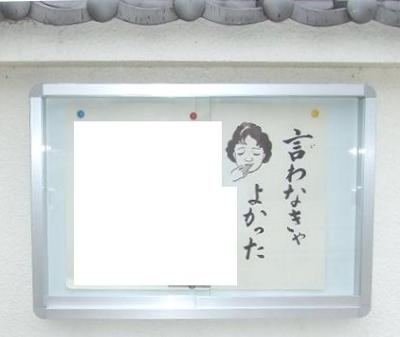 言わなきゃ
よかった